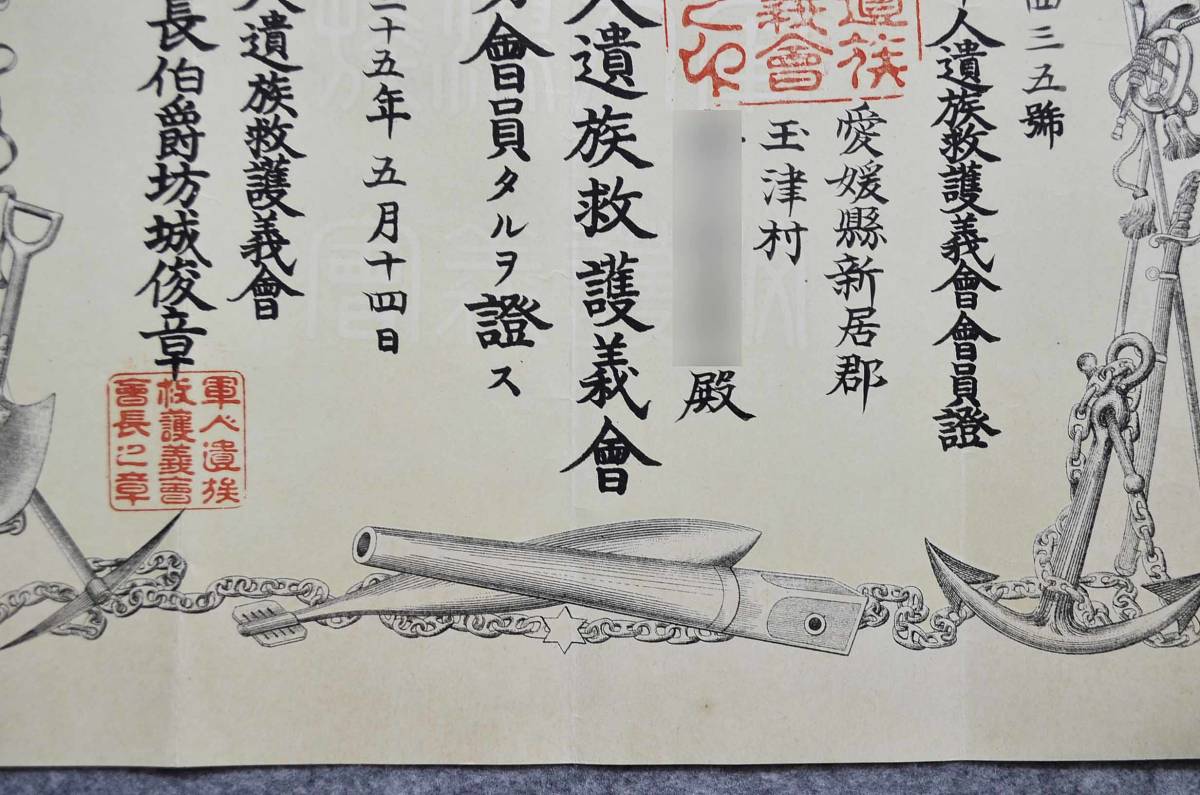 四三五號
人遺族救護義會會員證
愛媛縣新居郡
玉津村
殿
遺族
義會
之印
人遺族救護義會
會員タルヲ證ス
二十五年五月十四日
人遺族救護義會
長伯爵坊城俊章
軍人遺族
救護義會
會長之章